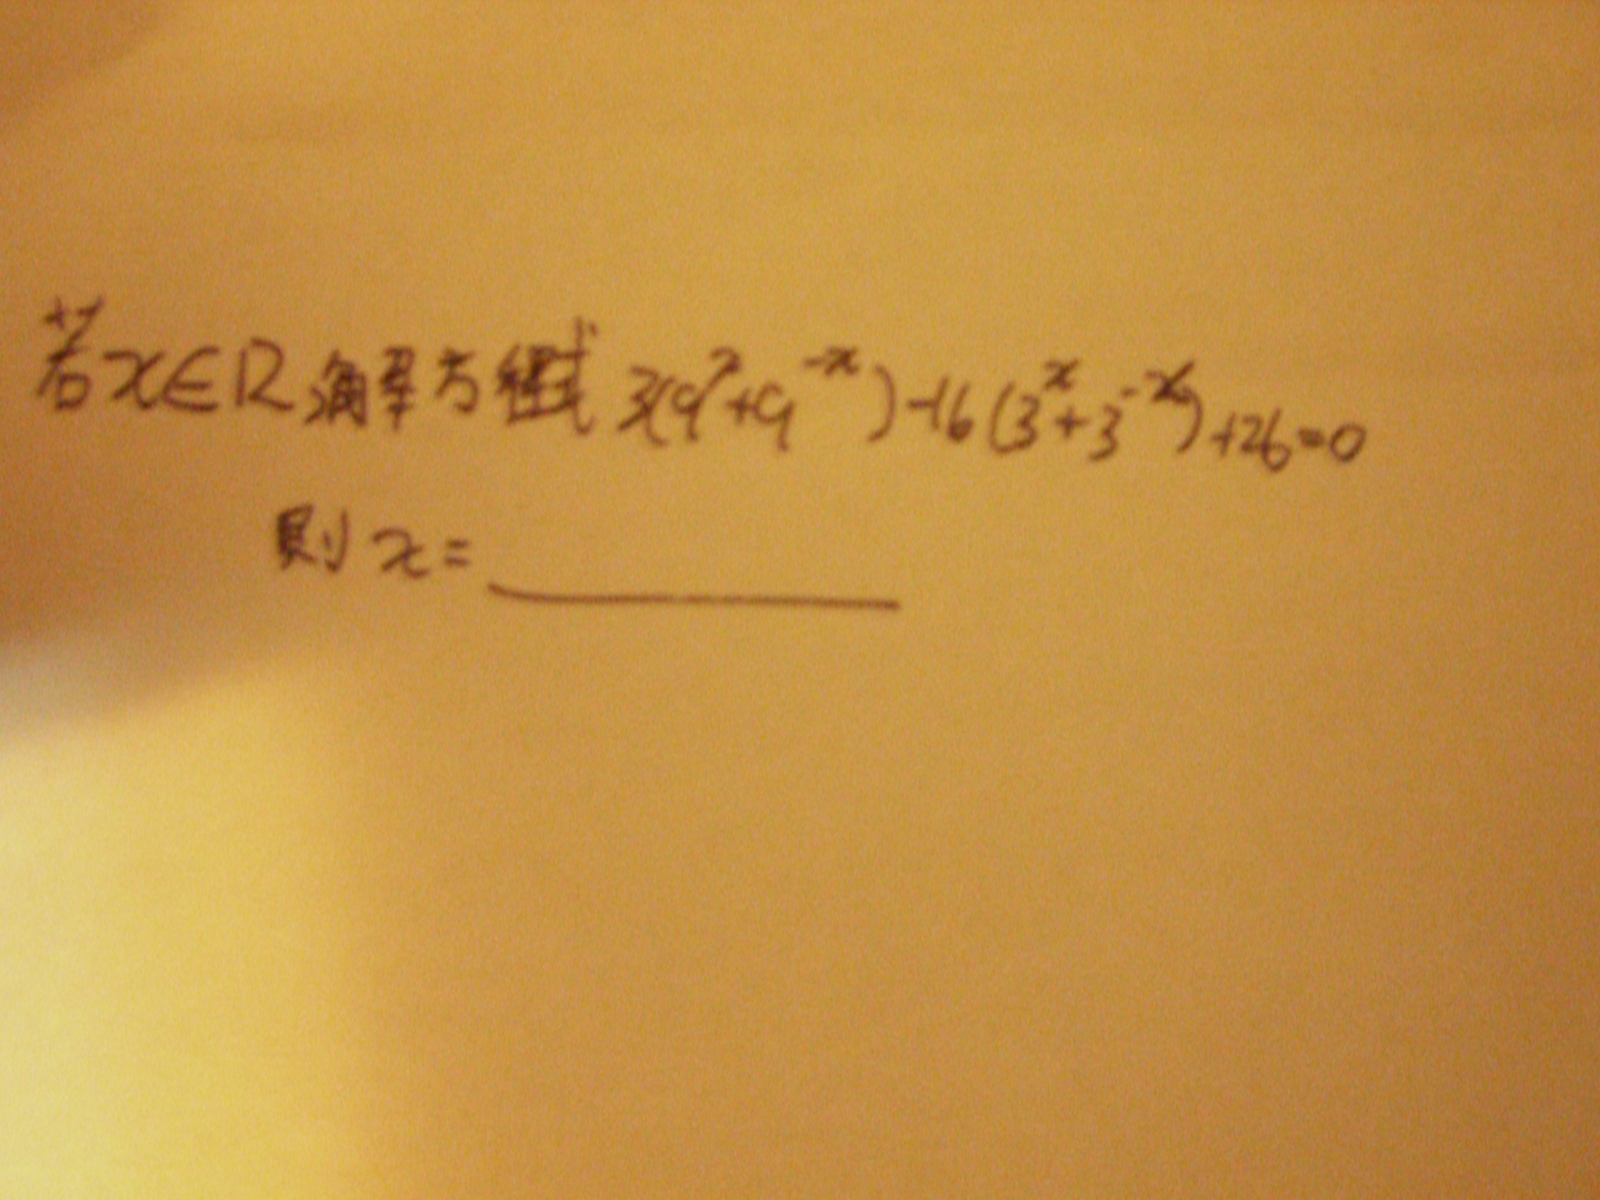 若x∈R 解方程式 3(9^x+9^-x)-16(3^x+3^-x)+26=0
則 x=